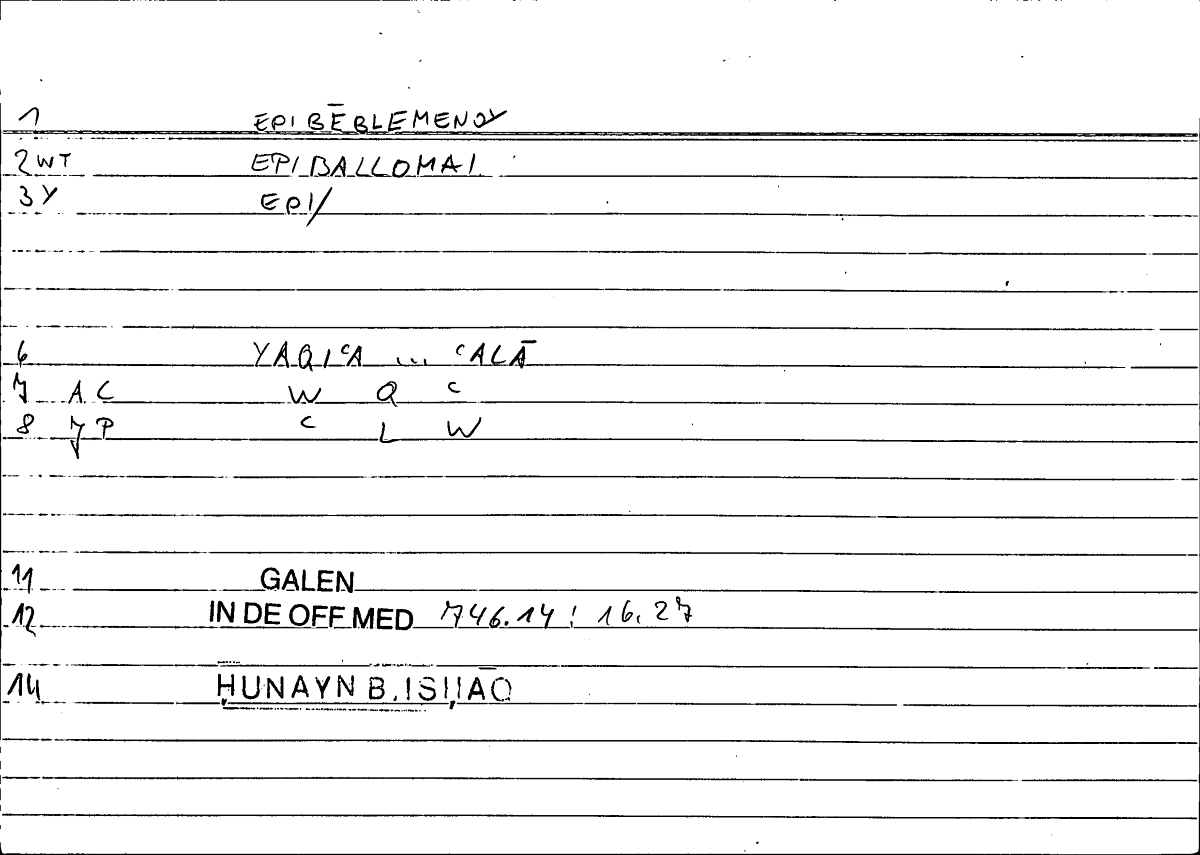 1 EPIBĒBLEMENOY
2WT EPIBALLOMAI
3Y EPI/
6 YAQIcA ... cALĀ
7 AC W Q c
8 7P c L W
11 GALEN
12 IN DE OFF MED 746.14 : 16.27
14 ḤUNAYN B. ISḤĀQ